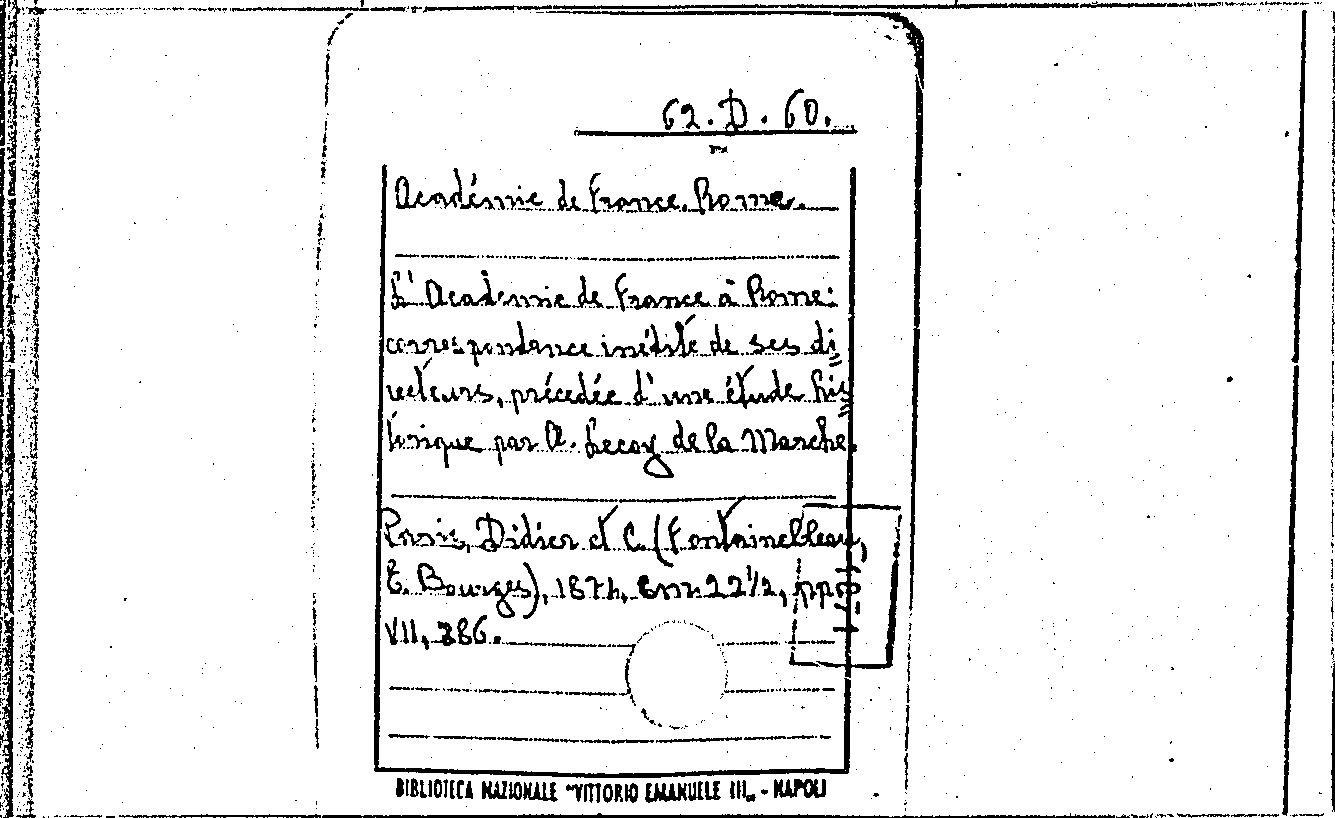 62.D.60.
Académie de France. Rome.
L'Académie de France à Rome:
correspondance inédite de ses di
recteurs, précédée d'une étude his
torique par A. Lecoy de la Marche.
Paris, Didier et C. (Fontainebleau,
E. Bourges), 1874, cm. 22½, pp.
VII, 386.
BIBLIOTECA NAZIONALE "VITTORIO EMANUELE III„ - NAPOLI